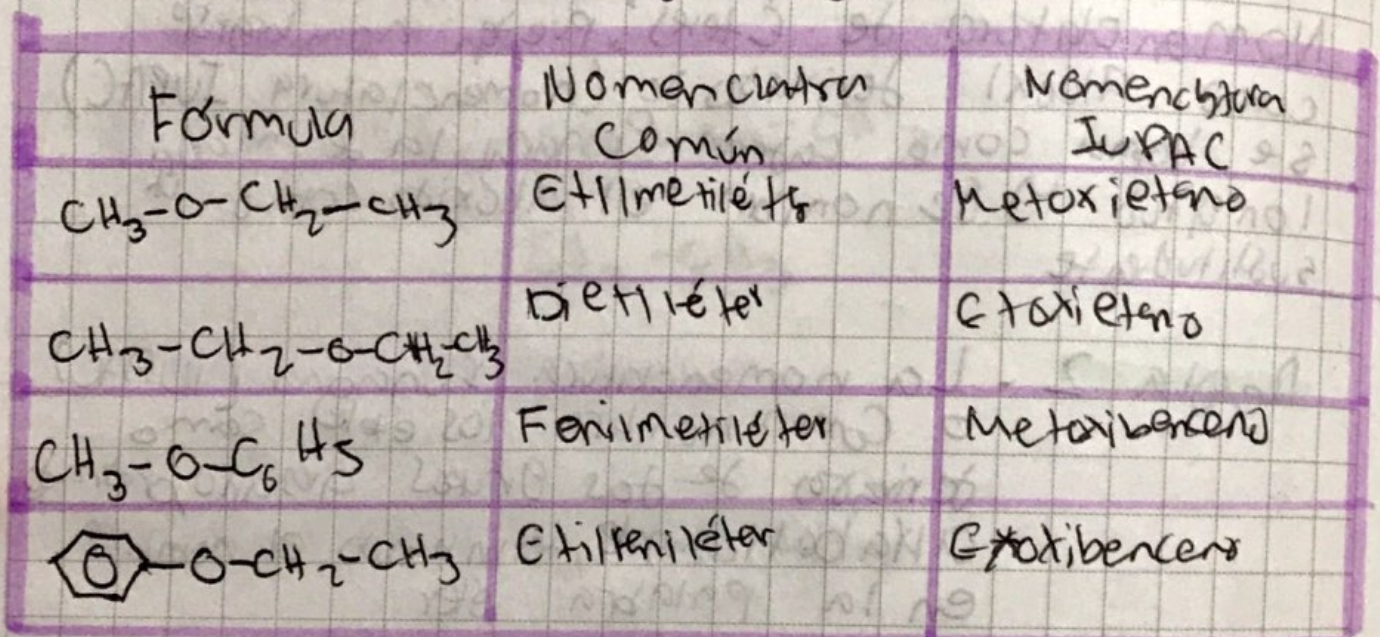 Fórmula
Nomenclatra
Común
Nomenclatura
IUPAC
CH₃-O-CH₂-CH₃
Etilmetiléter
Metoxietano
CH₃-CH₂-O-CH₂-CH₃
Dietiléter
Etoxietano
CH₃-O-C₆H₅
Fenilmetiléter
Metoxibenceno
-O-CH₂-CH₃
Etilfeniléter
Etoxibenceno